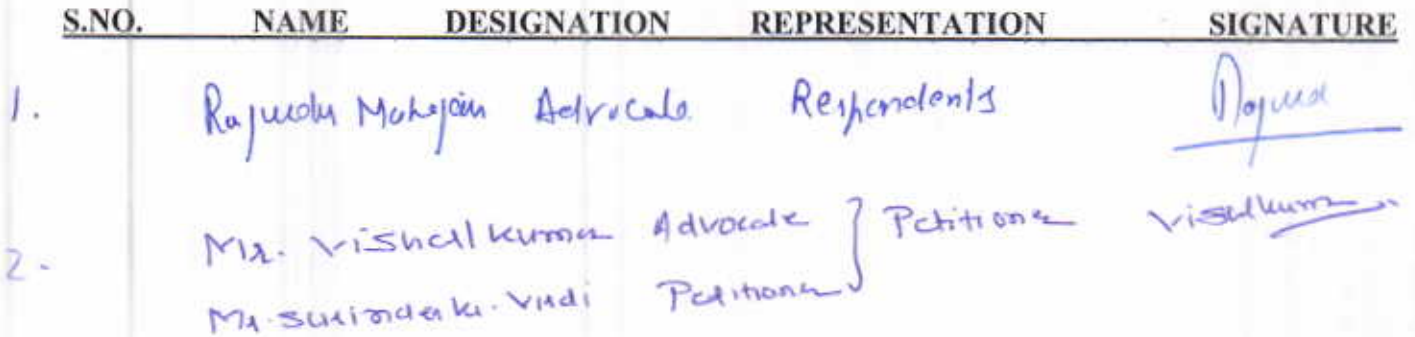 S.NO. NAME DESIGNATION REPRESENTATION SIGNATURE
1. Mahajan Advocate Respondents
2. Mr. Vishal Kumar Advocate } Petitioner Vishalkumar
Mr. Surinder Kr. Petitioner